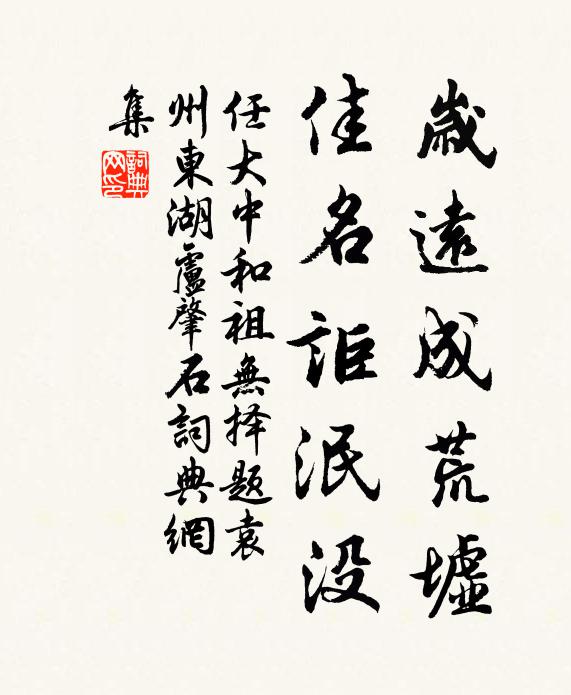 歲遠成荒墟
佳名詎泯没
任大中和祖無择題袁
州東湖盧肇石詞典網
集
詞典网印